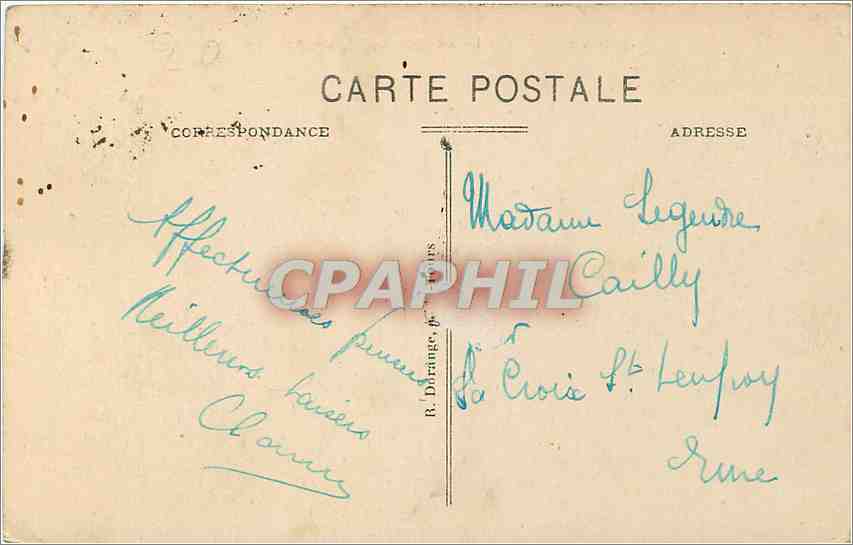 CARTE POSTALE
CORRESPONDANCE
ADRESSE
Affectueuses pensées
Meilleurs baisers
Madame Legendre
Cailly
à
La Croix St Leufroy
Eure
R. Dorange, Tours
CPAPHIL